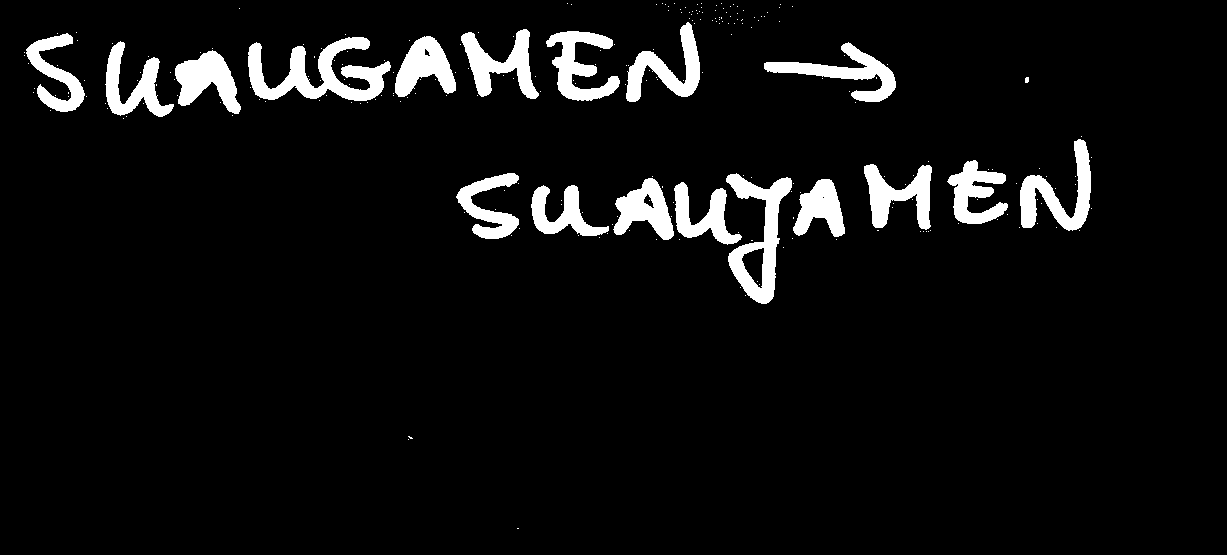 SUAUGAMEN →
SUAUYAMEN